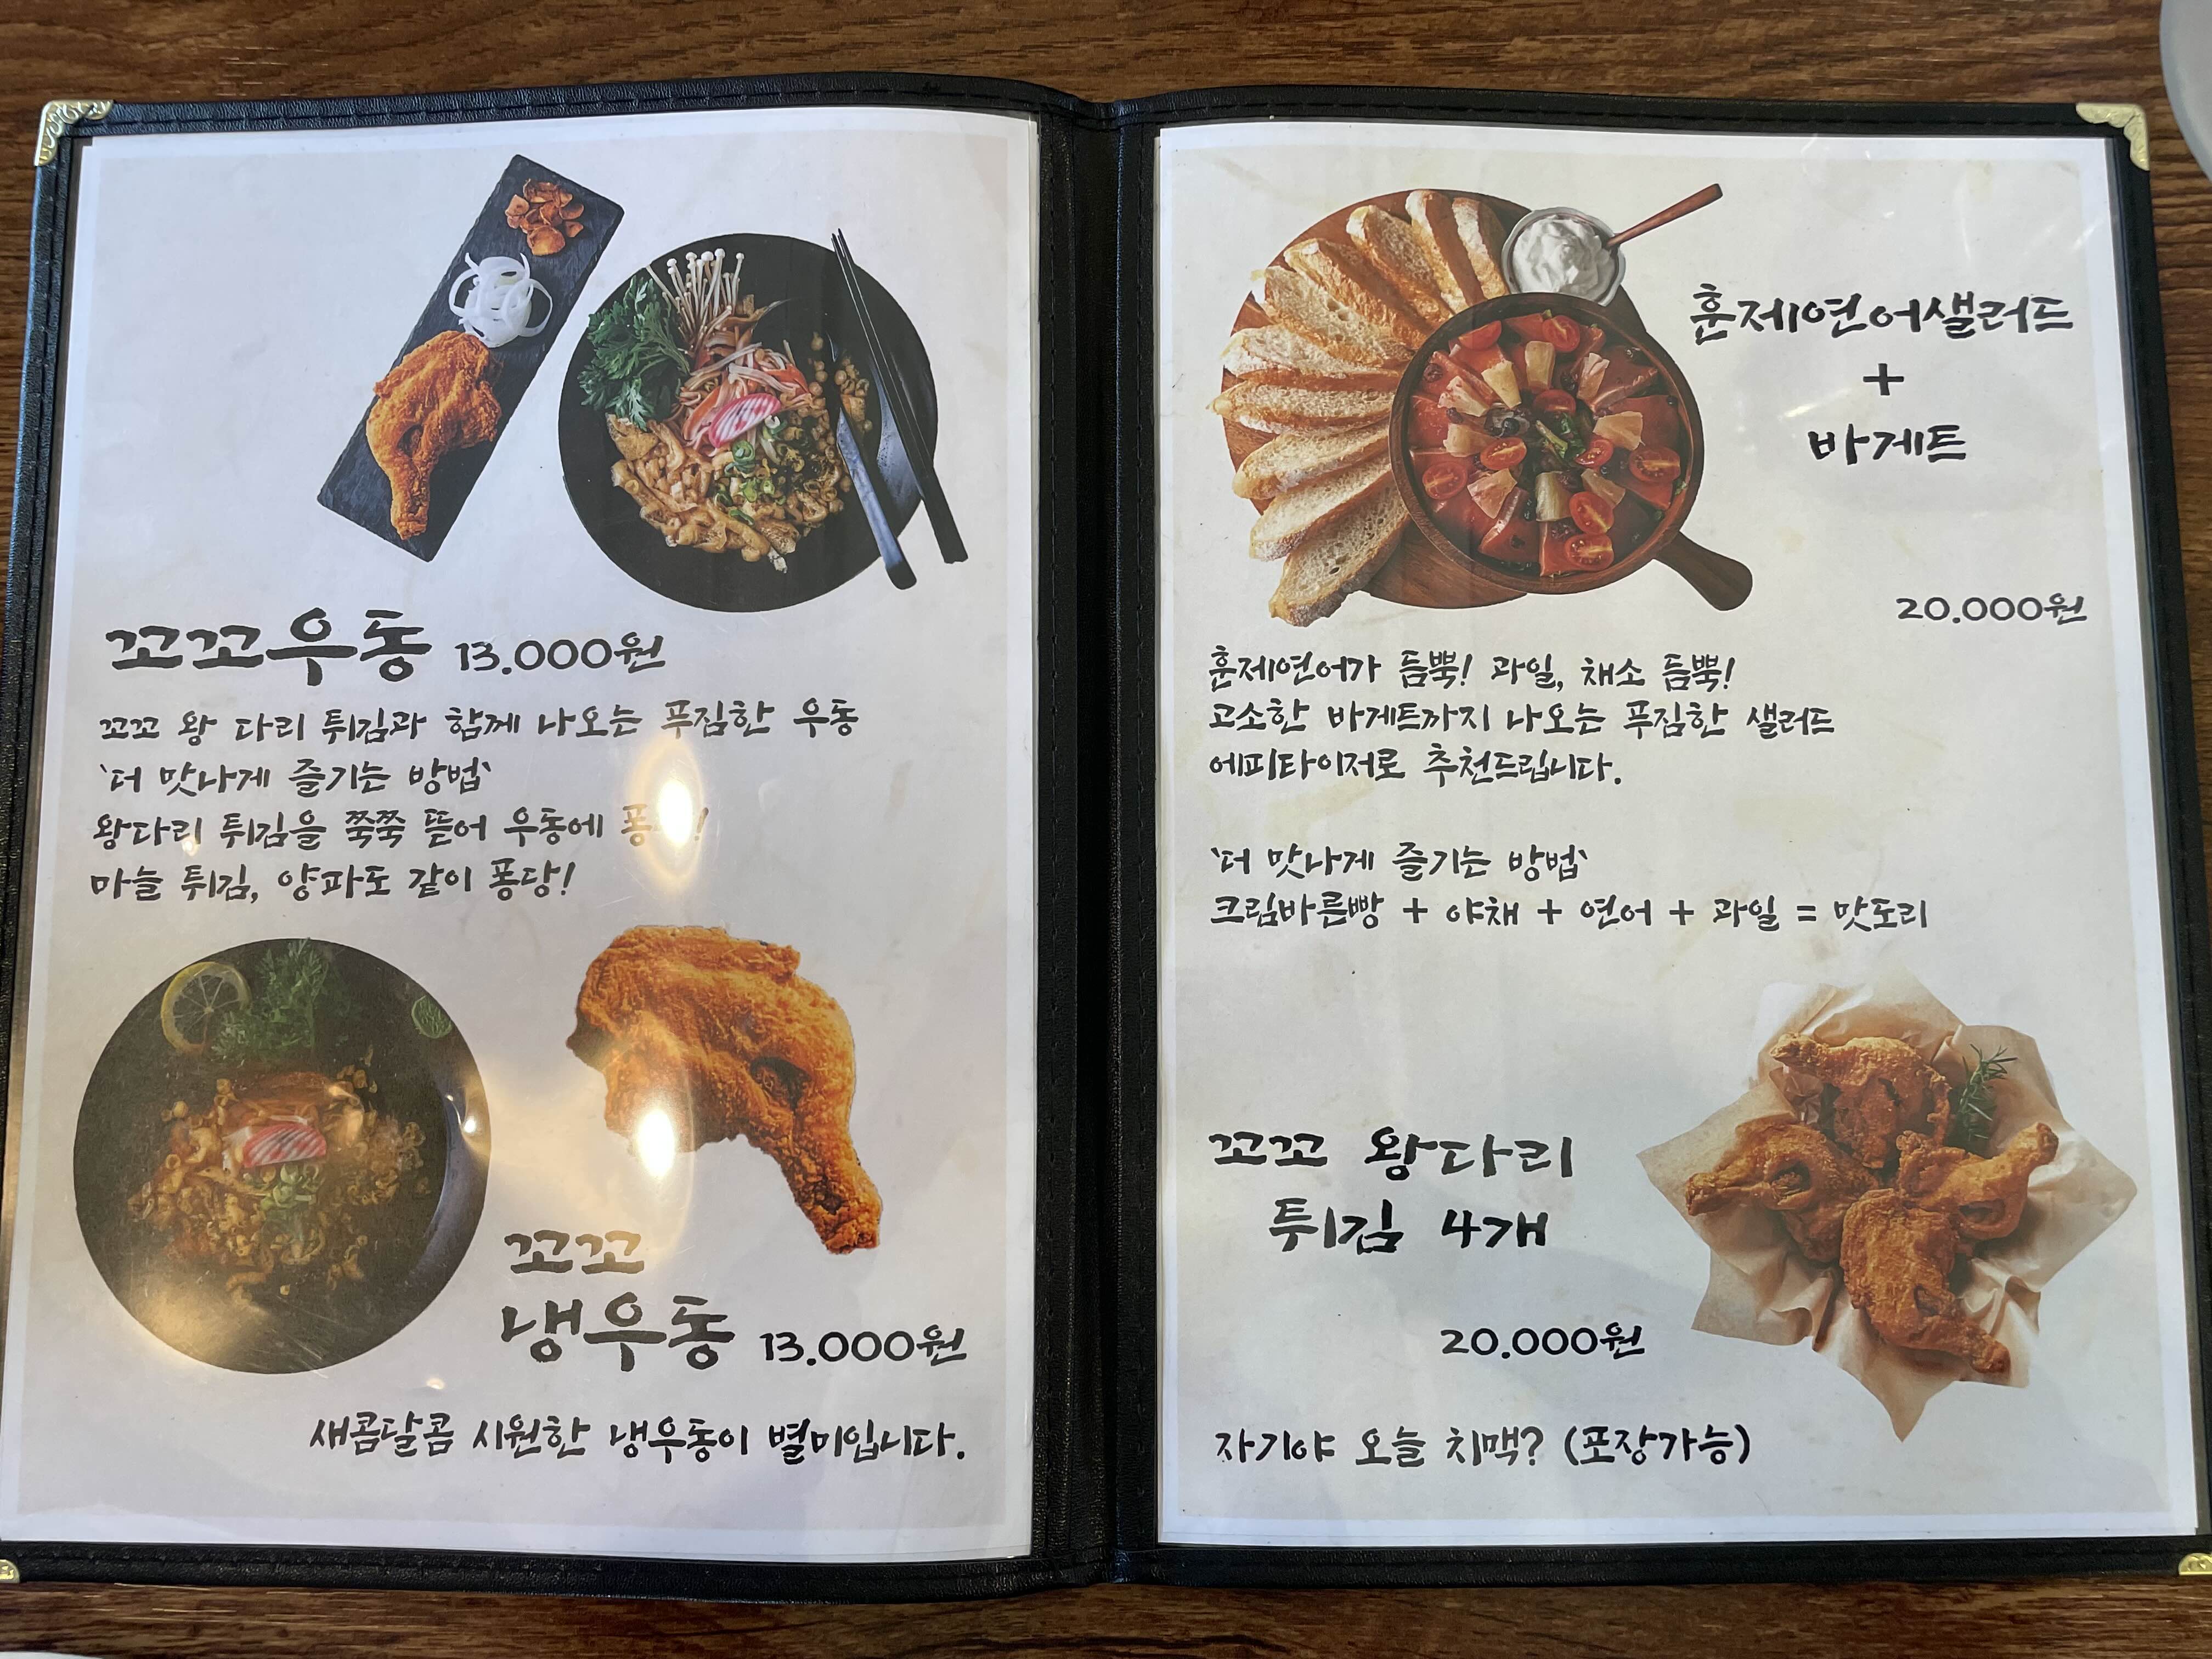 꼬꼬우동 13.000원
꼬꼬 왕 다리 튀김과 함께 나오는 푸짐한 우동
`더 맛나게 즐기는 방법`
왕다리 튀김을 쭉쭉 뜯어 우동에
마늘 튀김, 양파도 같이 퐁당!
꼬꼬
냉우동 13.000원
새콤달콤 시원한 냉우동이 별미입니다.
훈제연어샐러드
+
바게트
20.000원
훈제연어가 듬뿍! 과일, 채소 듬뿍!
고소한 바게트까지 나오는 푸짐한 샐러드
에피타이저로 추천드립니다.
`더 맛나게 즐기는 방법`
크림바른빵 + 야채 + 연어 + 과일 = 맛도리
꼬꼬 왕다리
튀김 4개
20.000원
자기야 오늘 치맥? (포장가능)